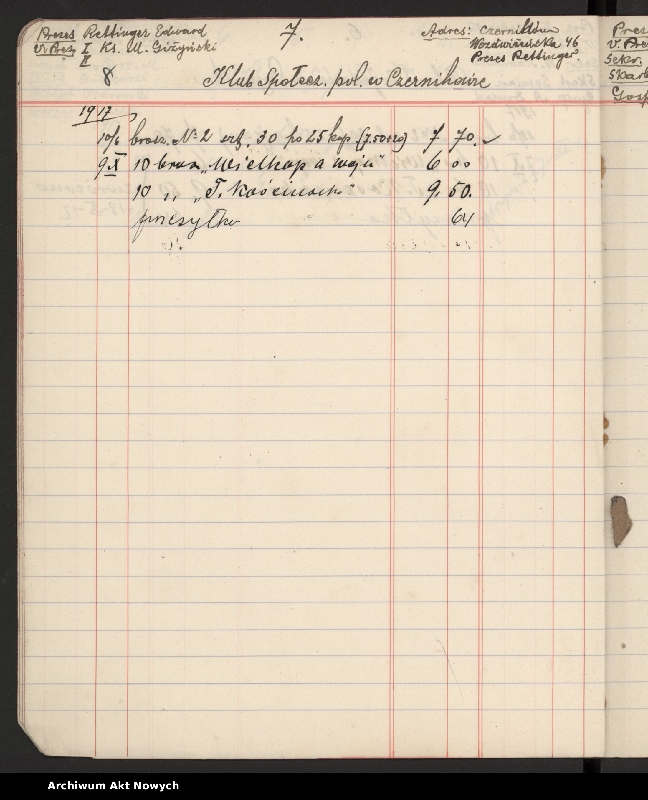 Prezes Rettinger Edward
V. Prez. I Ks. Wł. Giżyński
II
8
7.
Adres: Czernihów
46
Prezes Rettinger.
Klub Społecz. pol. w Czernihowie
1917
10/6 brosz. № 2 30 po 25 kop (7.50+20) 7 70.
9 X 10 brosz. „Wielkop a wojn" 6 00
10 „ „T. Kościuszk 9, 50.
przesyłka 64
Prez
V. Prez
Sekr.
Skarb
Gosp
Archiwum Akt Nowych